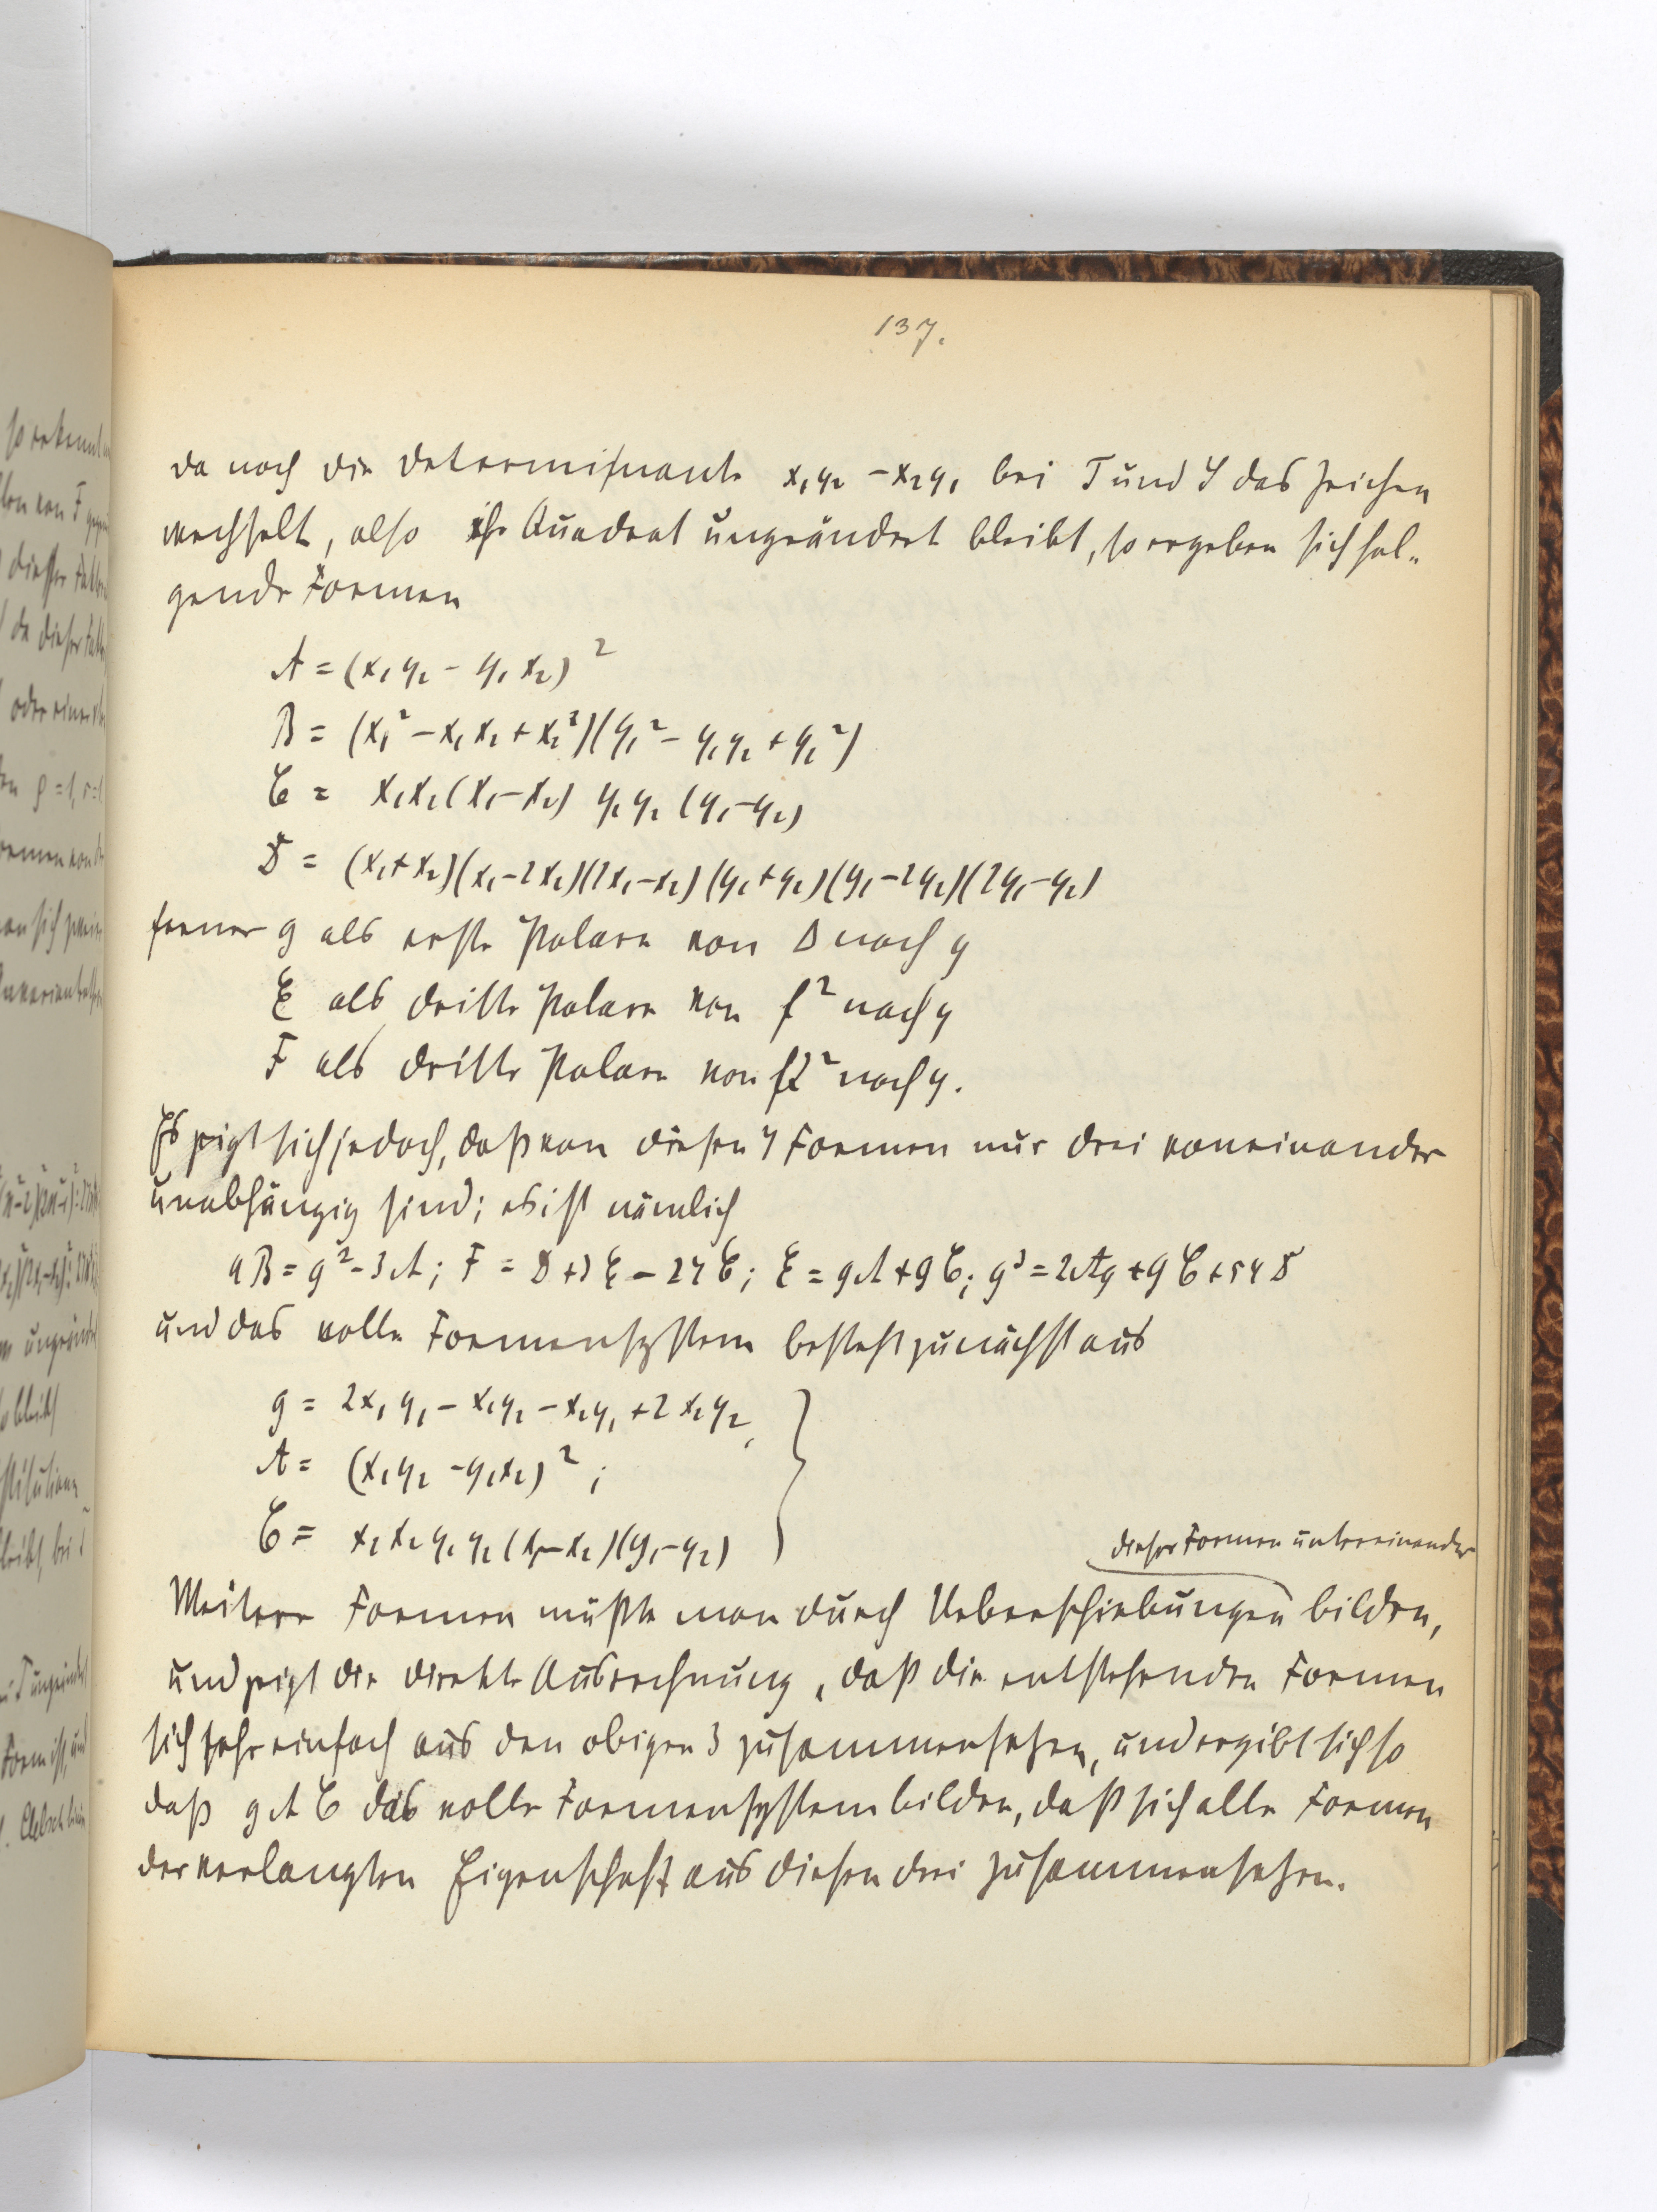 137.
da noch die Determinante x₁y₂ - x₂y₁ bei T und S das Zeichen
wechselt, also ihr Quadrat ungeändert bleibt, so ergeben sich fol-
gende Formen
A = (x₁y₂ - y₁x₂)²
B = (x₁² - x₁x₂ + x₂²)(y₁² - y₁y₂ + y₂²)
C = x₁x₂(x₁-x₂) y₁y₂(y₁-y₂)
D = (x₁+x₂)(x₁-2x₂)(2x₁-x₂)(y₁+y₂)(y₁-2y₂)(2y₁-y₂)
ferner g als erste Polare von Δ nach y
E als dritte Polare von f² nach y
F als dritte Polare von nach y.
Es zeigt sich jedoch, daß von diesen 7 Formen nur drei voneinander
unabhängig sind; es ist nämlich
4B = g² - 3A; F = D + 3E - 27C; E = gA + 9C; g³ = 2Ag + 9C + 54D
und das volle Formensystem besteht zunächst aus
g = 2x₁y₁ - x₁y₂ - x₂y₁ + 2x₂y₂,
A = (x₁y₂ - y₁x₂)²;
C = x₁x₂y₁y₂(x₁-x₂)(y₁-y₂)
dieser Formen untereinander
Weitere Formen müßte man durch Ueberschiebungen bilden,
und zeigt die direkte Ausrechnung, daß die entstehenden Formen
sich sehr einfach aus den obigen 3 zusammensetzen, und ergibt sich so
daß g A C das volle Formensystem bilden, daß sich alle Formen
der verlangten Eigenschaft aus diesen drei zusammensetzen.